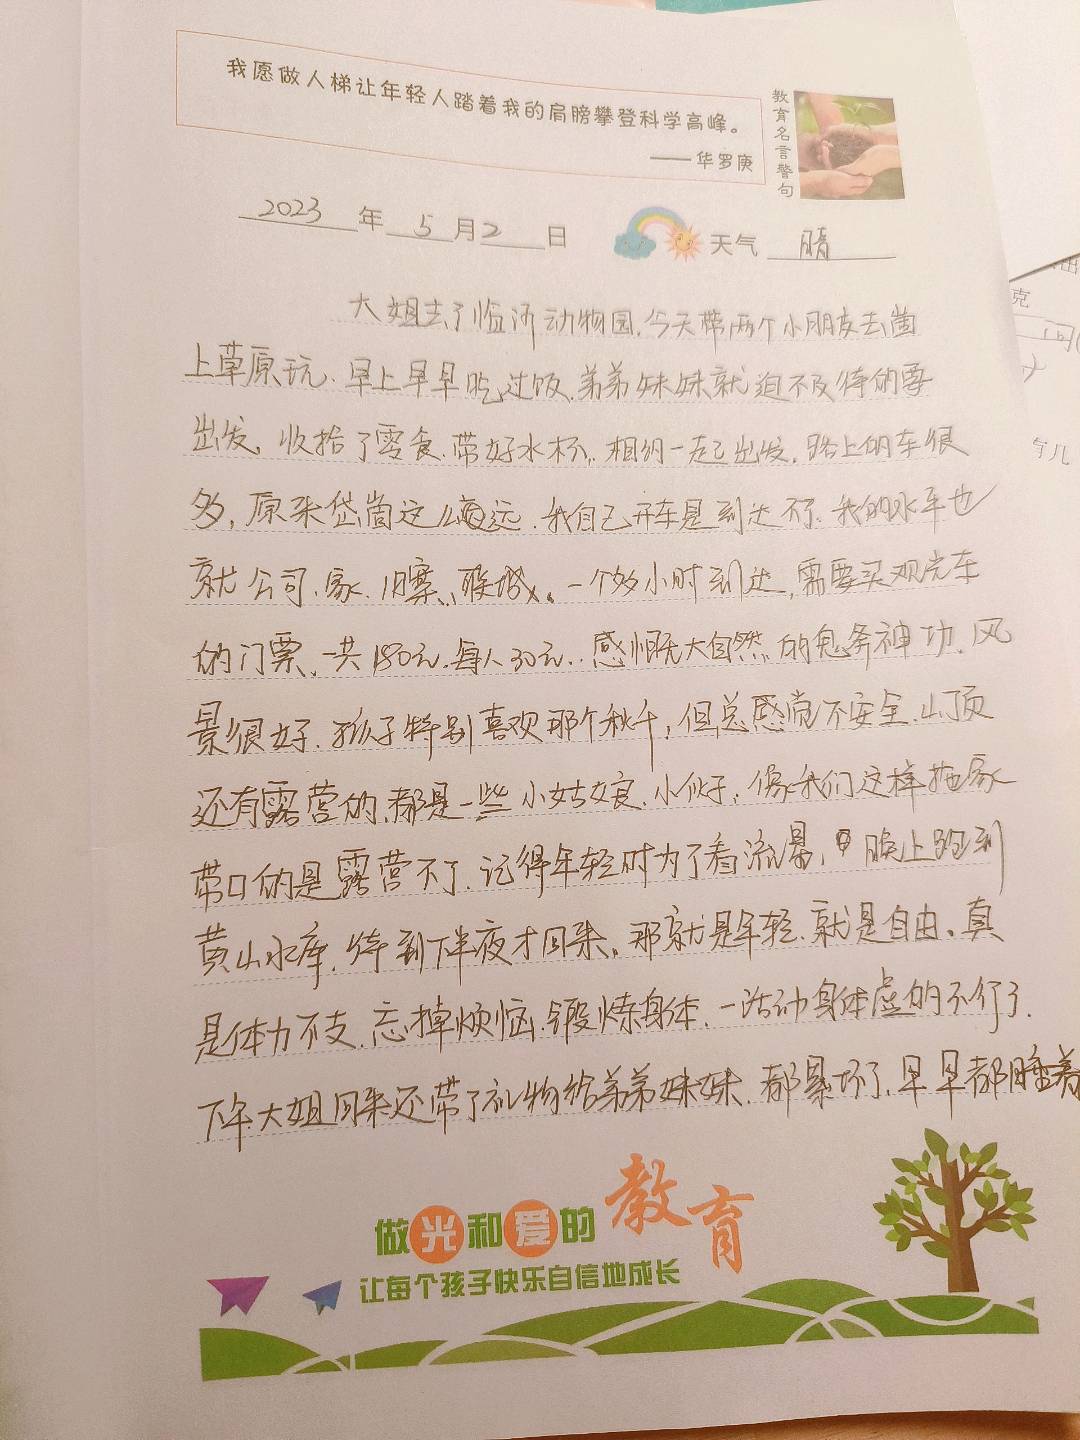 我愿做人梯让年轻人踏着我的肩膀攀登科学高峰。
——华罗庚
教育名言警句
2023年5月2日 天气 晴
大姐去了临沂动物园.今天带两个小朋友去崮
上草原玩.早上早早吃过饭.弟弟妹妹就迫不及待的要
出发.收拾了零食.带好水杯.相约一起出发.路上的车很
多,原来岱崮这么远.我自己开车是到达不了.我的水平也
就公司.家.旧寨、。一个多小时到达,需要买观光车
的门票,一共180元.每人30元..感慨大自然的鬼斧神功.风
景很好.孩子特别喜欢那个秋千,但总感觉不安全.山顶
还有露营的.都是一些小姑娘.小伙子,像我们这样拖家
带口的是露营不了.记得年轻时为了看流星,晚上跑到
黄山水库,待到下半夜才回来。那就是年轻.就是自由。真
是体力不支.忘掉烦恼.锻炼身体.一活动身体虚的不行了.
下午大姐回来还带了礼物给弟弟妹妹.都累坏了.早早都睡着
做光和爱的教育
让每个孩子快乐自信地成长
克
问
有几